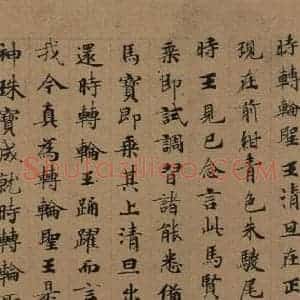 時轉輪聖王清旦在正
現在前紺青色朱駿尾
時王見已念言此馬賢
乘即試調習諸能悉備
馬寶即乘其上清旦出
還時轉輪王踊躍而言
我今真為轉輪聖王是
神珠寶成就時轉輪聖